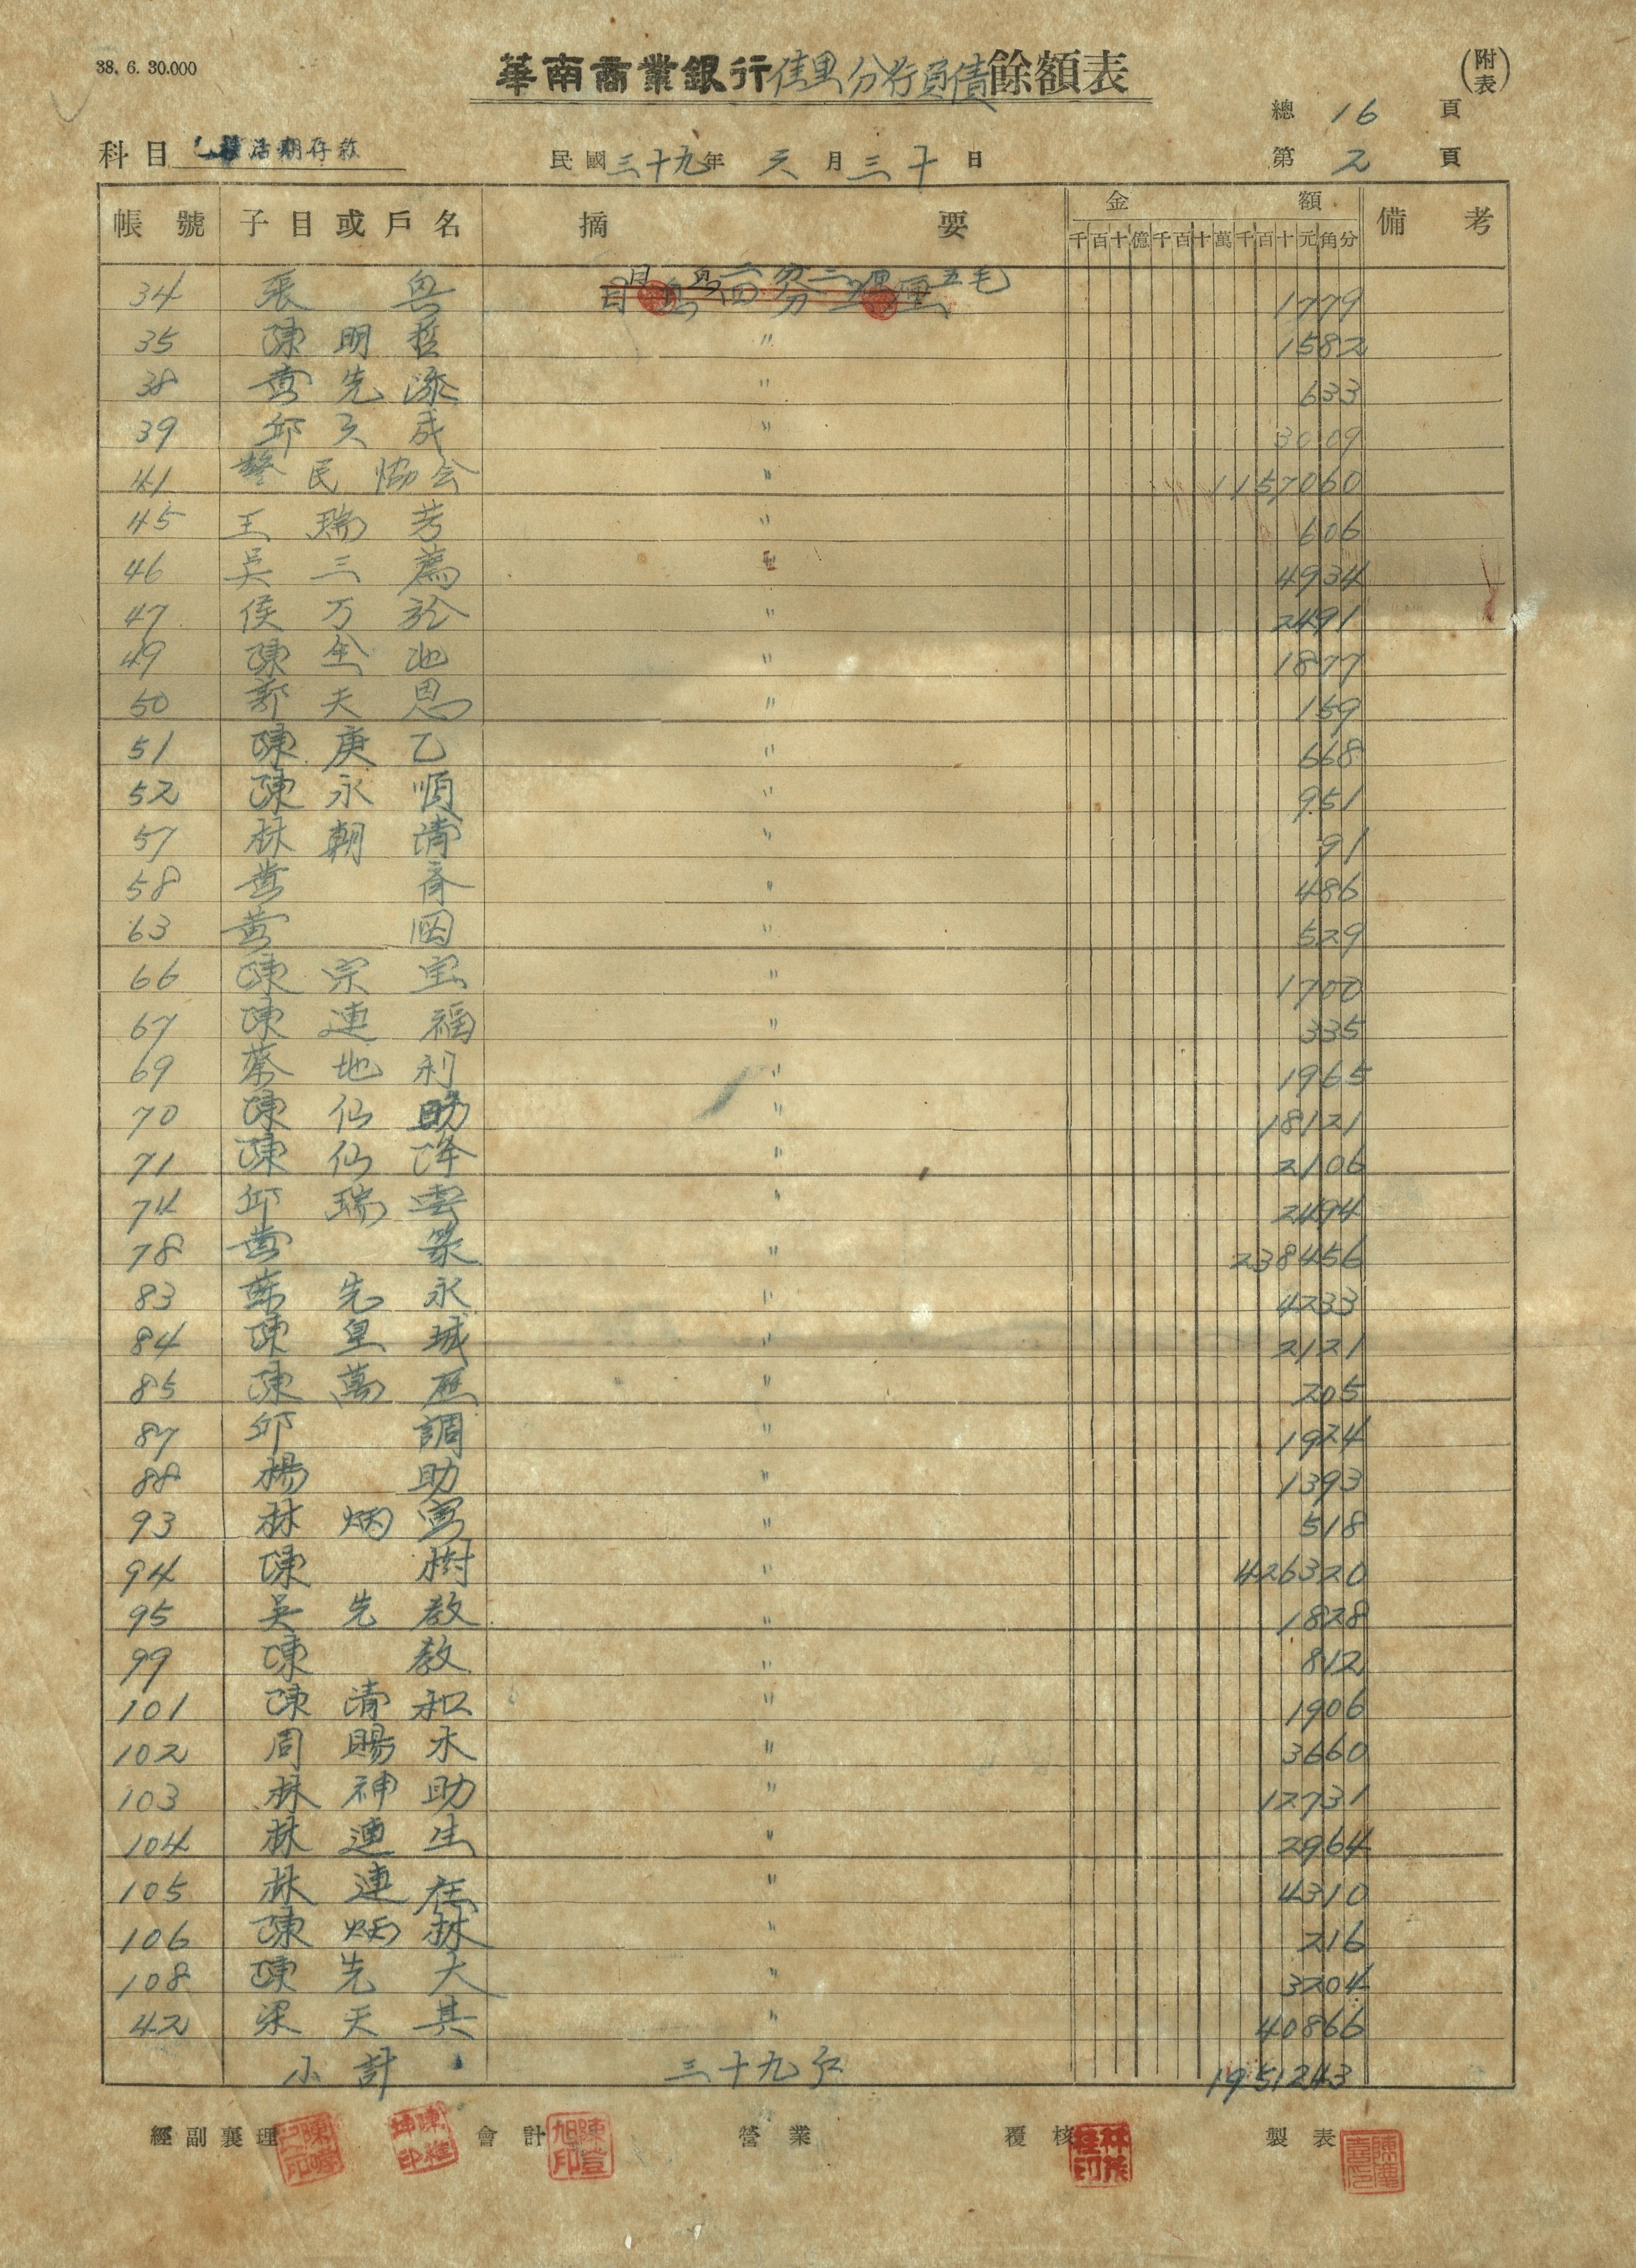 38. 6. 30.000
華南商業銀行佳里分行負債餘額表
(附表)
總 16 頁
科目 乙種活期存款
民國三十九年 六月三十日
第 2 頁
帳號 子目或戶名 摘要 金額 備考
千百十億千百十萬千百十元角分
月息六分三厘五毛
34 張 1779
35 陳明哲 〃 1582
38 黃先添 〃 633
39 邱天成 〃 3009
41 警民協会 〃 1157060
45 王瑞芳 〃 606
46 吳三薦 〃 4934
47 侯万於 〃 2491
49 陳金池 〃 1877
50 郭天恩 〃 159
51 陳庚乙 〃 668
52 陳永順 〃 951
57 林朝清 〃 91
58 黃斉 〃 486
63 黃固 〃 529
66 陳宗宝 〃 1700
67 陳連福 〃 335
69 蔡地利 〃 1965
70 陳仙助 〃 18121
71 陳仙降 〃 2106
74 邱瑞雲 〃 2494
78 黃篆 〃 238456
83 蘇先永 〃 4233
84 陳皇城 〃 2121
85 陳萬應 〃 205
87 邱調 〃 1924
88 楊助 〃 1393
93 林炳寅 〃 518
94 陳樹 〃 426320
95 吳先教 〃 1828
99 陳教 〃 812
101 陳清和 〃 1906
102 周賜永 〃 3660
103 林神助 〃 12731
104 林連生 〃 2964
105 林連 〃 4310
106 陳炳林 〃 216
108 陳先大 〃 3204
42 梁天其 〃 40866
小計 三十九戶 1951243
經副襄理 會計 營業 覆核 製表